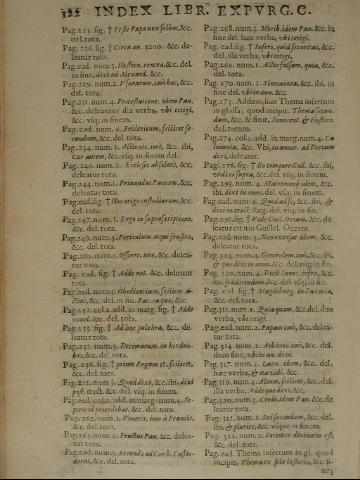 122 INDEX LIBR. EXPVRG. C.
Pag. 225. fig. † Et se Papa non solùm, &c.
del. tota.
Pag. 226. fig. † Circa an. 1200. &c. de-
leatur tota.
Pag. ead. num. 3. Hostien. contra, &c. del.
in fine, dixi ad Alexand. &c.
Pag. 229. num. 2. Vsurarum, imò hac, &c.
del. tota.
Pag. 232. num. 4. Protestatione, idem Pan.
&c. deleantur illa verba, vbi tetigi,
&c. vsq; in finem.
Pag. ead. num. 6. Fridericum, scilicet se-
cundum, &c. del. tota.
Pag. 234. num. 1. Actionis, imò, &c. ibi,
Cur autem, &c. vsq; in finem del.
Pag. 240. num. 1. Ecclesia absoluta, &c.
deleatur tota.
Pag. 244. num. 1. &c.
del. tota.
Pag. ead. fig. † Hac origo custodiarum, &c.
del. tota.
Pag. 247. num. 1. Ergo in suprascriptione,
&c. del. tota.
Pag. 249. num. 3. Periculum atqui frustra,
&c. del. tota.
Pag. 250. num. 2. Offerre, imò, &c. delea-
tur tota.
Pag. ead. fig. † Adde not. &c. deleatur
tota.
Pag. ead. num. 2. Obedientiam, scilicet
&c. del. in fin. &c.
Pag. 252. colu. add. in marg. fig. † Adde
&c. del. tota.
Pag. 253. fig. † Ad hac &c. de-
leatur tota.
Pag. 255. num. 3. Decimarum, in hisdem
&c. del. tota.
Pag. 256. fig. † primo Regum 18. scilicet,
&c. del. tota.
Pag. 261. num. 3. Quod dixi, &c. ibi, dixi
post. tract. &c. del. vsq; in finem.
Pag. ead. colu. add. in marg. num. 4.
&c. del. tota.
Pag. 262. num. 2. imò à Francis,
&c. del. tota.
Pag. 263. num. 2. Fructus Pan. &c. delea-
tur tota.
Pag. ead. num. 4. Secundi ad Corb.
&c. del. tota.
Pag. 268. num. 3. Morib. idem Pan. &c. in
fine del. hæc verba, vbi tetigi.
Pag. ead. fig. † Infero, quid securitas, &c.
del. illa verba, vbi tetigi.
Pag. 269. num. 1. Acto falsum, quia, &c.
del. tota.
Pag. 270. num. 1. Simoniaca, &c. ibi, in
fine del. vbi tetigi.
Pag. 273. Additio, siue Thema insertum
in glossa, quod incipit, Thema secun-
dum, &c. & finit, Innocent. & Hostien.
del. totum.
Pag. 274. colu. add. in marg. num. 4. Ca-
lumnia, &c. Vbi, in amor. ad Decium
dixi, deleatur.
Pag. 276. fig. † Eo tempore Gull. &c. ibi,
vt dixi supra, &c. del. vsq; in finem.
Pag. 293. num. 4. Matrimonij idem, &c.
ibi, dixi in anno. del. vsq; in finem.
Pag. ead. num. 6. Quod ad 50. &c. ibi, &
dixi in tract. Reg. del. vsq; in fin.
Pag. 298. fig. † Vide Guil. Occam, &c. de-
leatur citatio Guillel. Occam.
Pag. ead. num. 3. Non excusat idem, &c.
deleatur tota.
Pag. 304. num. 4. Generalem, imò, &c. ibi,
& quæ dixi in anno, &c. del. vsq; in fin.
Pag. 310. num. 4. Dicit Innoc. infra, &c.
ibi, &c. del. vsq; in fin.
Pag. ead. fig. † Magdeburg. in Saxonia,
&c. del. tota.
Pag. 311. num. 2. Quiaquum, &c. del. duo
verba, vbi tetigi.
Pag. ead. num. 2. Papam imò, &c. delea-
tur tota.
Pag. 314. num. 2. Arbitris imò, &c. del.
ibi in fine, vbi in ann. dixi.
Pag. 317. num. 2. Latere, idem, &c. del.
hæc verba, & ita vidi, &c.
Pag. 319. num. 3. Alium, scilicet, &c. del.
illa verba, Adde quæ dixi, &c.
Pag. 320. num. 5. Credo idem Pan. &c. de-
leatur tota.
Pag. 321. num. 1. Sed secundum, &c. del.
ibi, & pluries, &c. vsque in finem.
Pag. 322. num. 2. Semper diuinatio est,
&c. del. tota.
Pag. ead. Thema insertum in gl. quod
incipit, Thema ex &c. in fi-
ni;